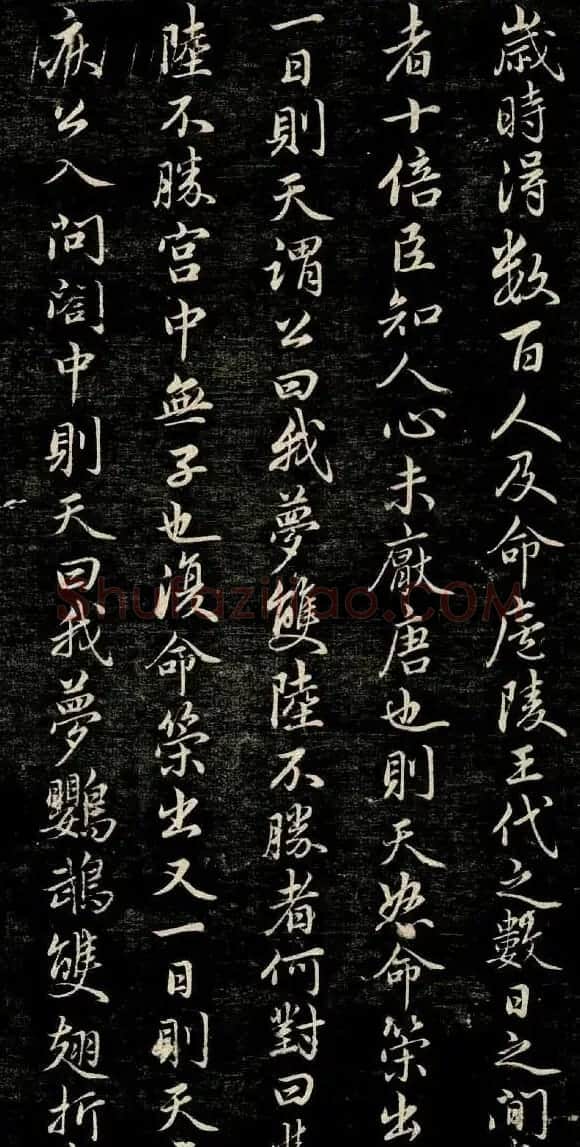 歲時得数百人及命廬陵王代之數日之間
者十倍臣知人心未厭唐也則天怒命策出
一日則天謂公曰我夢雙陸不勝者何對曰
陸不勝宮中無子也復命策出又一日則天
疾公入問閤中則天曰我夢鸚鵡雙翅折
Shufaziliao.COM